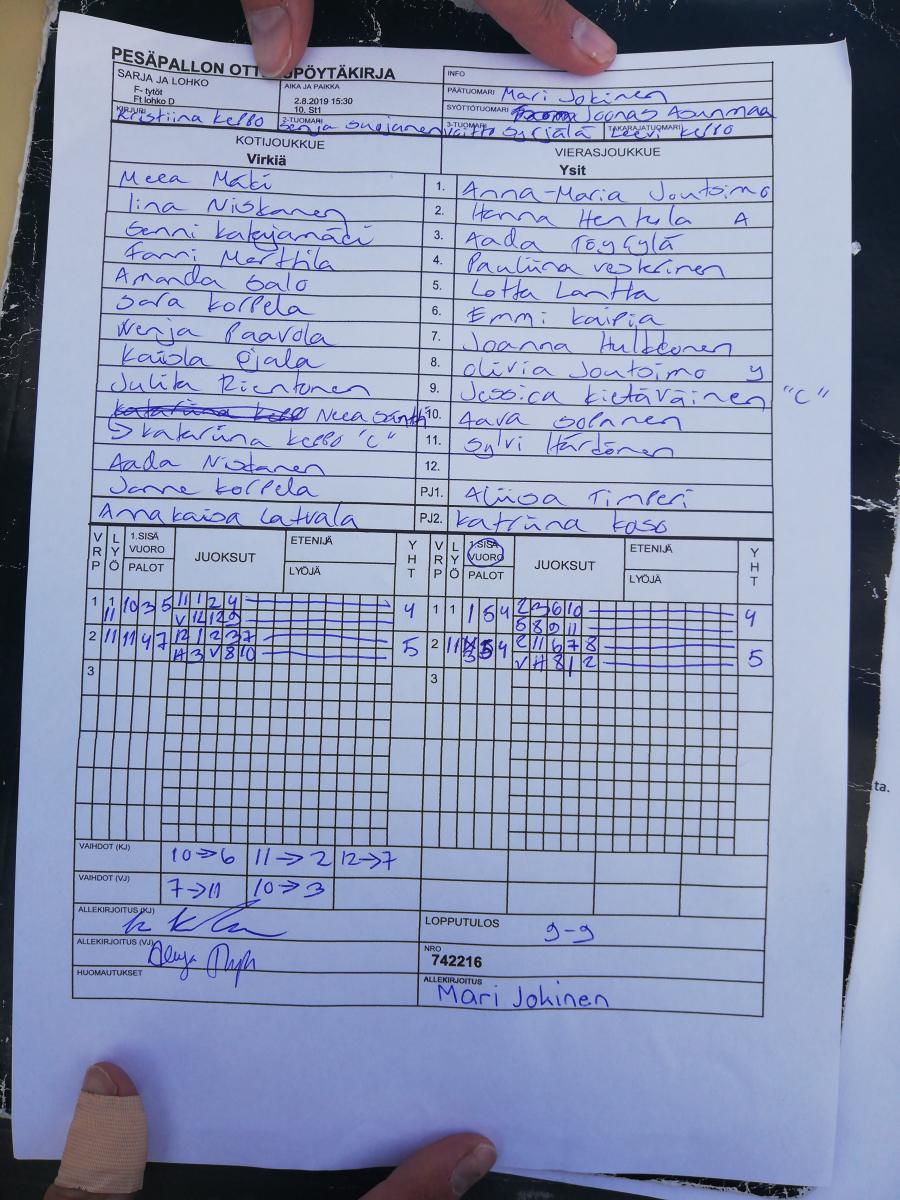 PESÄPALLON OTT PÖYTÄKIRJA
SARJA JA LOHKO
F- tytöt
Ft lohko D
AIKA JA PAIKKA
2.8.2019 15:30
10. St1
INFO
PÄÄTUOMARI Mari Jokinen
SYÖTTÖTUOMARI Joonas Asunmaa
KIRJURI Kristiina Kello
2-TUOMARI
3-TUOMARI
TAKARAJATUOMARI Leevi Kello
KOTIJOUKKUE
Virkiä
VIERASJOUKKUE
Ysit
Meea Mäki 1. Anna-Maria Joutsimo
Iina Niskanen 2. Henna Hentula A
Senni Katajamäki 3. Aada Töytylä
Fanni Marttila 4. Pauliina
Amanda Salo 5. Lotta Lantta
Sara Korpela 6. Emmi Kaipia
Venja Paavola 7. Joanna Hulkkonen
Kaisla Ojala 8. Olivia Joutsimo y
Julita Rientonen 9. Jessica Kietäväinen "C"
Neea Säntti 10. Aava
→ Katariina Kello "C" 11. Sylvi Härdönen
Aada Niskanen 12.
Janne Korpela PJ1. Aliisa Timperi
Annakaisa Latvala PJ2. Katriina Kaso
VRP LYÖ 1.SISÄ VUORO PALOT JUOKSUT ETENIJÄ LYÖJÄ YHT VRP LYÖ 1.SISÄ VUORO PALOT JUOKSUT ETENIJÄ LYÖJÄ YHT
1 1 10 3 5 11 1 2 4 4 1 1 1 5 4 2 3 6 10 4
11 V 12 12 9 5 8 9 11
2 11 11 4 7 12 1 2 3 7 5 2 11 5 4 2 11 6 7 8 5
H 3 V 8 10 V H 8 1 2
3 3
VAIHDOT (KJ) 10→6 11→2 12→7
VAIHDOT (VJ) 7→11 10→3
ALLEKIRJOITUS (KJ)
LOPPUTULOS 9-9
ALLEKIRJOITUS (VJ)
NRO
742216
HUOMAUTUKSET
ALLEKIRJOITUS
Mari Jokinen
ta.